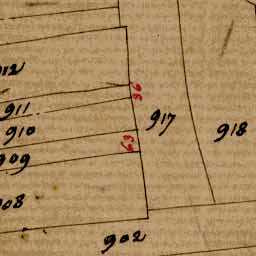 912
96
911
917
910
918
63
909
908
902